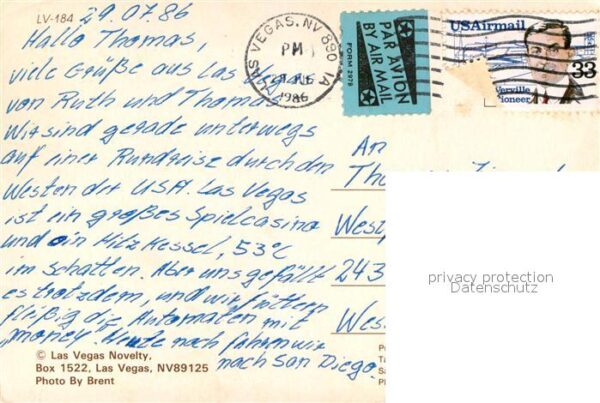 LV-184
29.07.86
Hallo Thomas,
viele Grüße aus Las Vegas
von Ruth und Thomas
Wir sind gerade unterwegs
auf einer Rundreise durch den
Westen der USA. Las Vegas
ist ein großes Spielcasino
und ein Hitzkessel, 53°C
im Schatten. Aber uns gefällt
es trotzdem, und wir füttern
fleißig die Automaten mit
"money". Heute noch fahren wir
nach San Diego.
© Las Vegas Novelty,
Box 1522, Las Vegas, NV89125
Photo By Brent
LAS VEGAS, NV 890
PM
1986
PAR AVION
BY AIR MAIL
FORM 2978
USAirmail
33
Verville
ioneer
An
Tho
West
243
Wes
privacy protection
Datenschutz